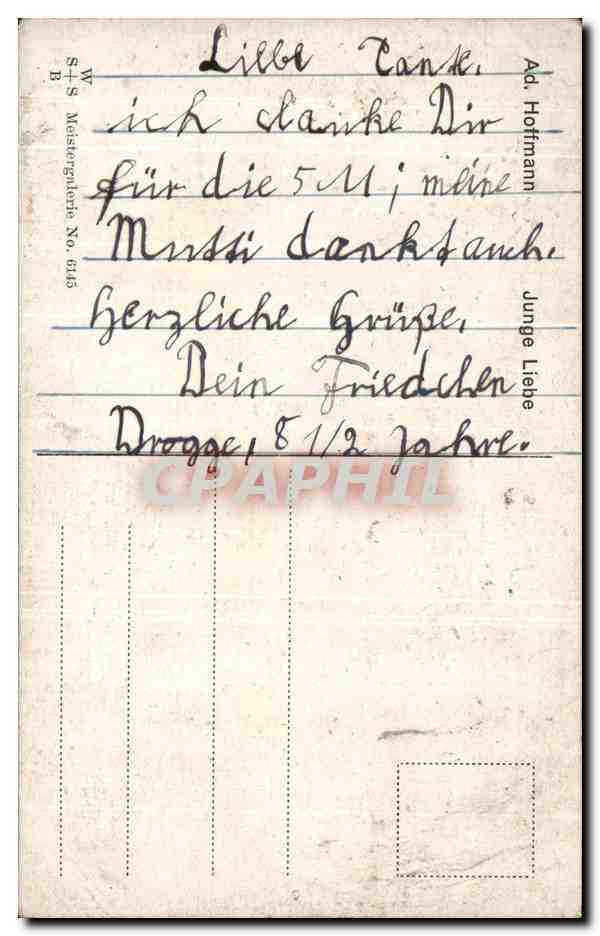 Liebe Tante.
ich danke Dir
für die 5 M; meine
Mutti dankt auch.
Herzliche Grüße.
Dein Friedchen
Drogge, 8 1/2 Jahre.
Ad. Hoffmann Junge Liebe
W
S+S Meistergalerie No. 6145
B
CPAPHIL